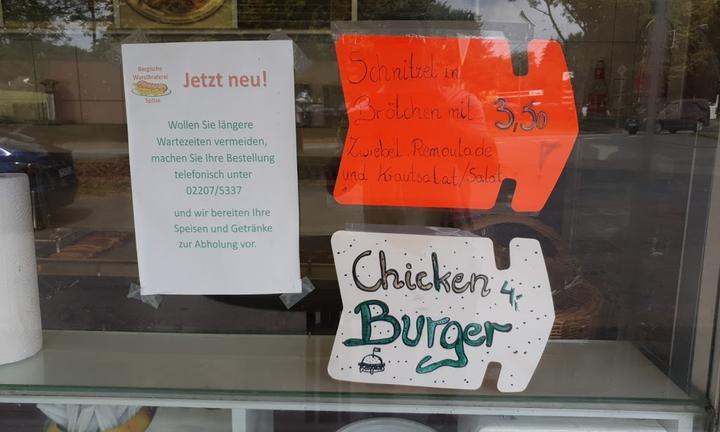 Bergische
Wurstbraterei
Spitze
Jetzt neu!
Wollen Sie längere
Wartezeiten vermeiden,
machen Sie Ihre Bestellung
telefonisch unter
02207/5337
und wir bereiten Ihre
Speisen und Getränke
zur Abholung vor.
Schnitzel im
Brötchen mit 3,50
Zwiebel, Remoulade
und Krautsalat/Salat
Chicken 4,-
Burger